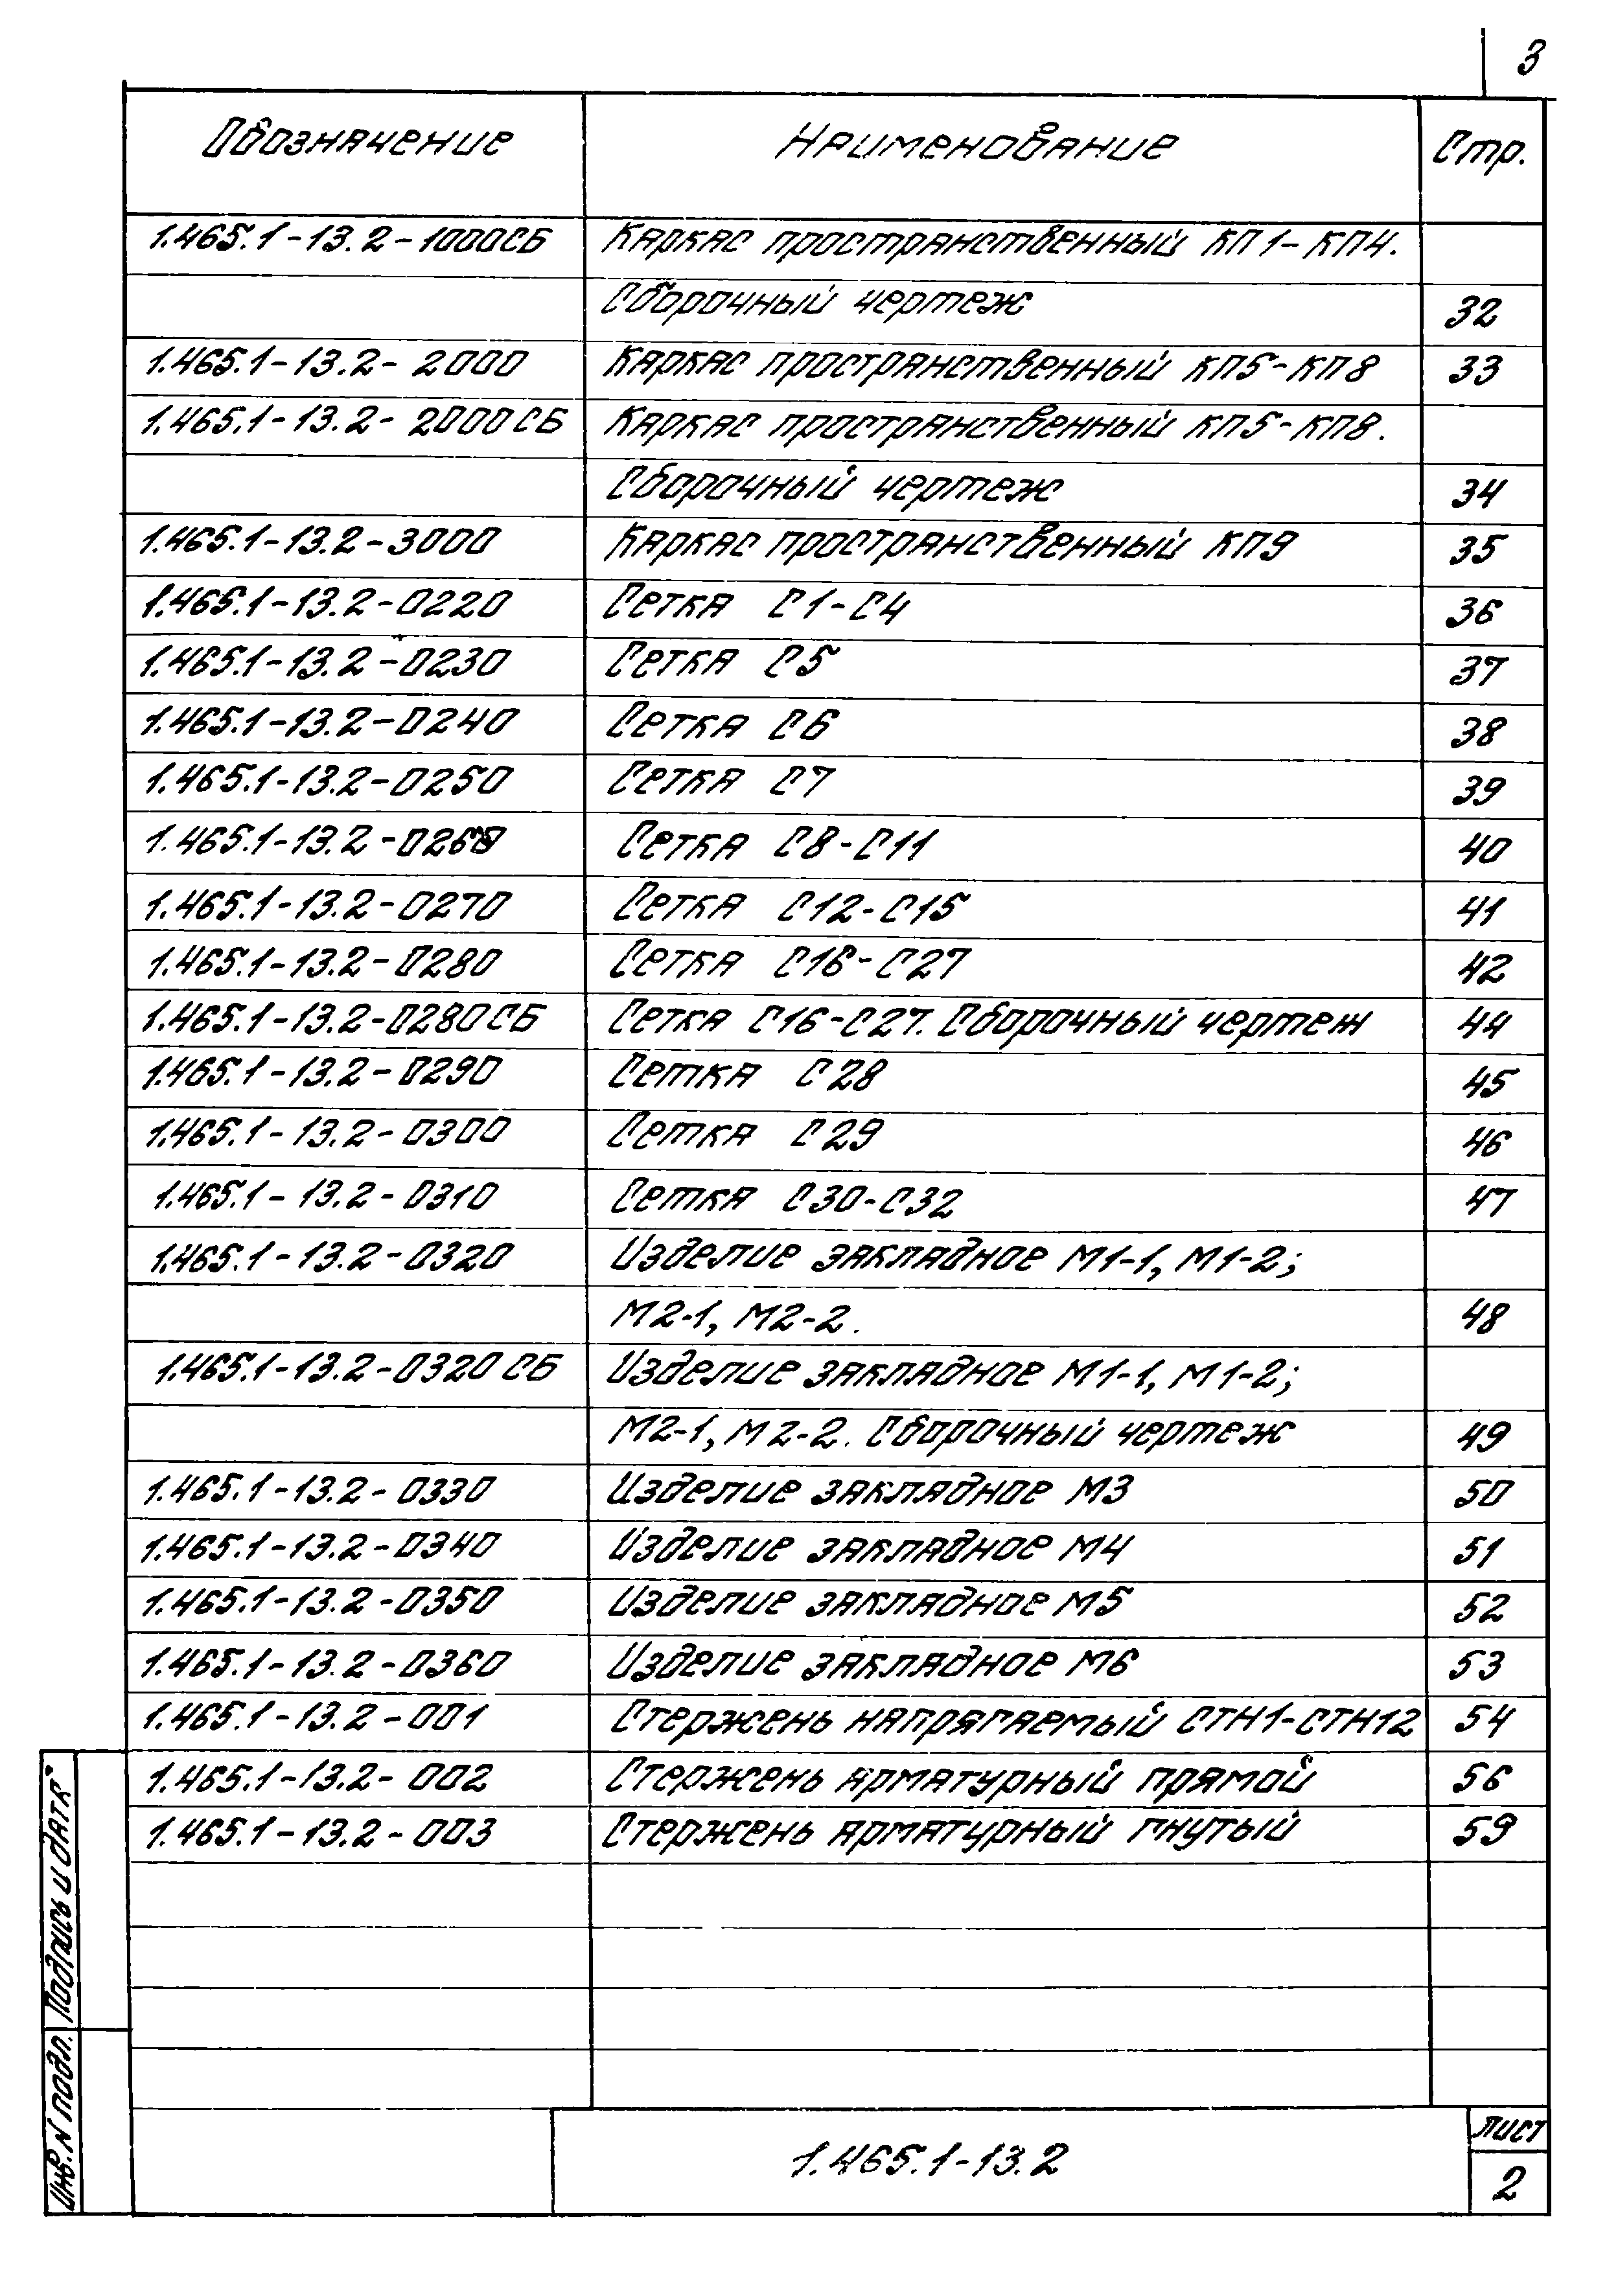 3
Обозначение Наименование Стр.
1.465.1-13.2-1000СБ Каркас пространственный КП1-КП4.
Сборочный чертеж 32
1.465.1-13.2-2000 Каркас пространственный КП5-КП8 33
1.465.1-13.2-2000СБ Каркас пространственный КП5-КП8.
Сборочный чертеж 34
1.465.1-13.2-3000 Каркас пространственный КП9 35
1.465.1-13.2-0220 Сетка С1-С4 36
1.465.1-13.2-0230 Сетка С5 37
1.465.1-13.2-0240 Сетка С6 38
1.465.1-13.2-0250 Сетка С7 39
1.465.1-13.2-0260 Сетка С8-С11 40
1.465.1-13.2-0270 Сетка С12-С15 41
1.465.1-13.2-0280 Сетка С16-С27 42
1.465.1-13.2-0280СБ Сетка С16-С27. Сборочный чертеж 44
1.465.1-13.2-0290 Сетка С28 45
1.465.1-13.2-0300 Сетка С29 46
1.465.1-13.2-0310 Сетка С30-С32 47
1.465.1-13.2-0320 Изделие закладное М1-1, М1-2;
М2-1, М2-2. 48
1.465.1-13.2-0320СБ Изделие закладное М1-1, М1-2;
М2-1, М2-2. Сборочный чертеж 49
1.465.1-13.2-0330 Изделие закладное М3 50
1.465.1-13.2-0340 Изделие закладное М4 51
1.465.1-13.2-0350 Изделие закладное М5 52
1.465.1-13.2-0360 Изделие закладное М6 53
1.465.1-13.2-001 Стержень напрягаемый СТН1-СТН12 54
1.465.1-13.2-002 Стержень арматурный прямой 56
1.465.1-13.2-003 Стержень арматурный гнутый 59
Инв. N подл. Подпись и дата
1.465.1-13.2
лист
2